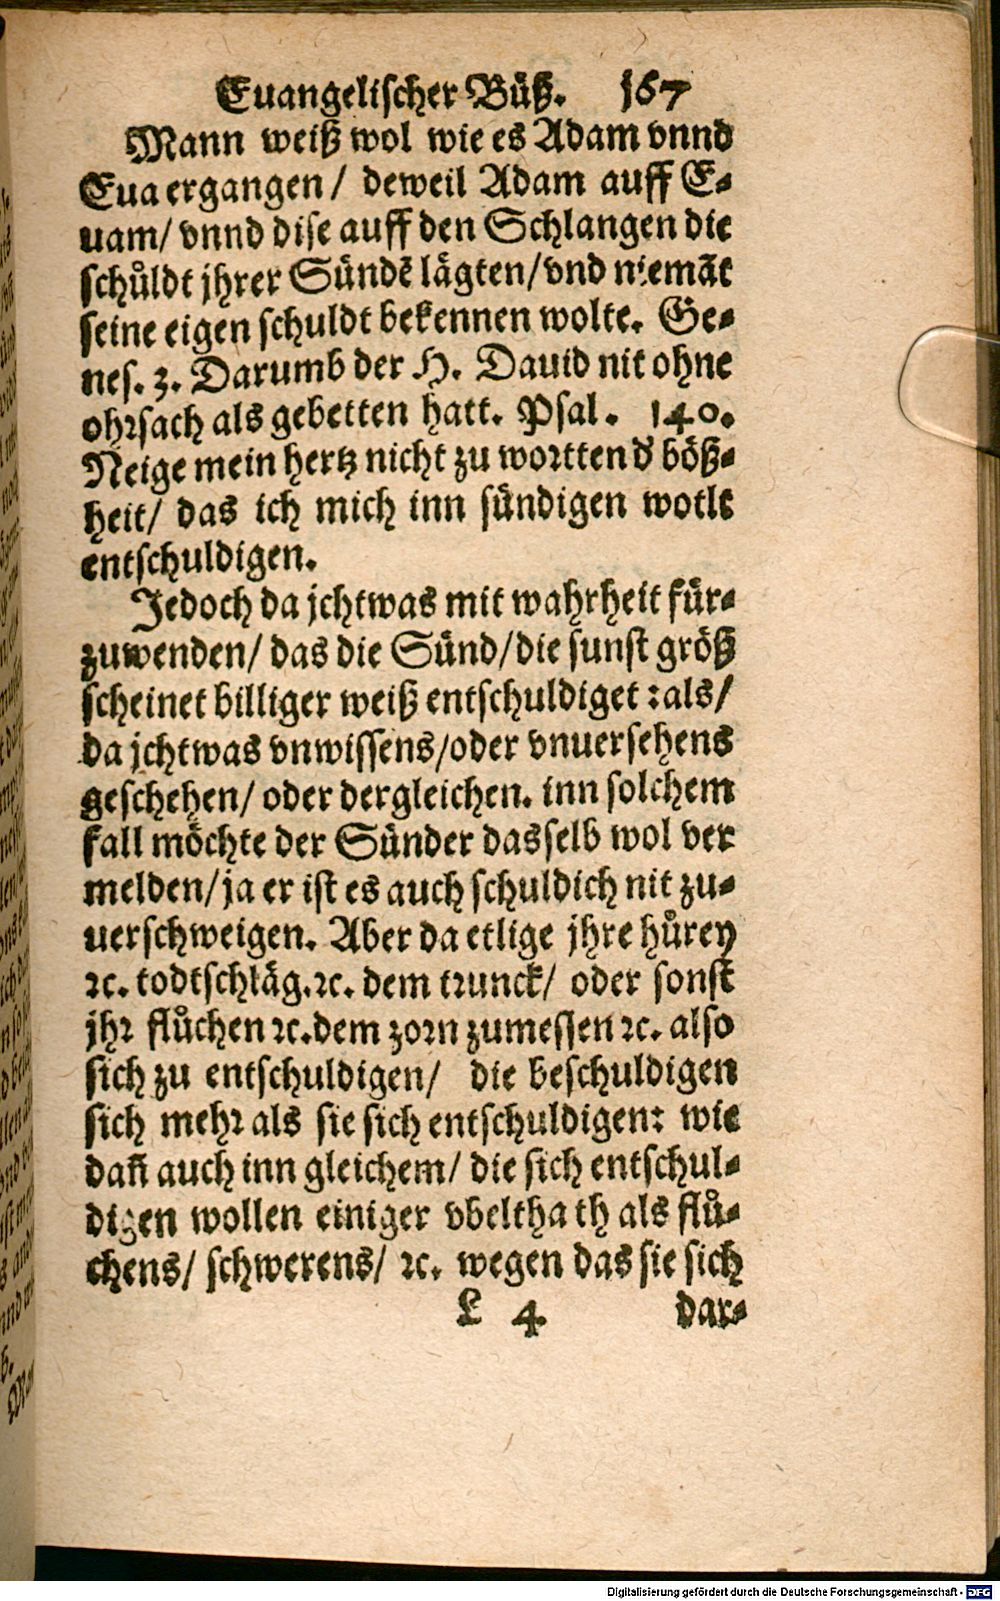 Euangelischer Büß. 167
Mann weiß wol wie es Adam vnnd
Eua ergangen/ deweil Adam auff E-
uam/ vnnd dise auff den Schlangen die
schůldt jhrer Sündẽ lägten/ vnd niemãt
seine eigen schuldt bekennen wolte. Ge-
nes. 3. Darumb der H. Dauid nit ohne
ohrsach als gebetten hatt. Psal. 140.
Neige mein hertz nicht zu wortten d̕ böß-
heit/ das ich mich inn sündigen wotle
entschuldigen.
Jedoch da jchtwas mit wahrheit für-
zuwenden/ das die Sünd/ die sunst größ
scheinet billiger weiß entschuldiget : als/
da jchtwas vnwissens/ oder vnuersehens
geschehen/ oder dergleichen. inn solchem
fall möchte der Sünder dasselb wol ver
melden/ ja er ist es auch schuldich nit zu-
uerschweigen. Aber da etlige jhre hůrey
ꝛc. todtschläg. ꝛc. dem trunck/ oder sonst
jhr flůchen ꝛc. dem zorn zumessen ꝛc. also
sich zu entschuldigen/ die beschuldigen
sich mehr als sie sich entschuldigen: wie
dañ auch inn gleichem/ die sich entschul-
digen wollen einiger vbeltha th als flů-
chens/ schwerens/ ꝛc. wegen das sie sich
L 4 dar-
Digitalisierung gefördert durch die Deutsche Forschungsgemeinschaft - DFG